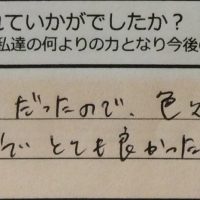 れていかがでしたか？
私達の何よりの力となり今後の
だったので、色々
でとても良かった